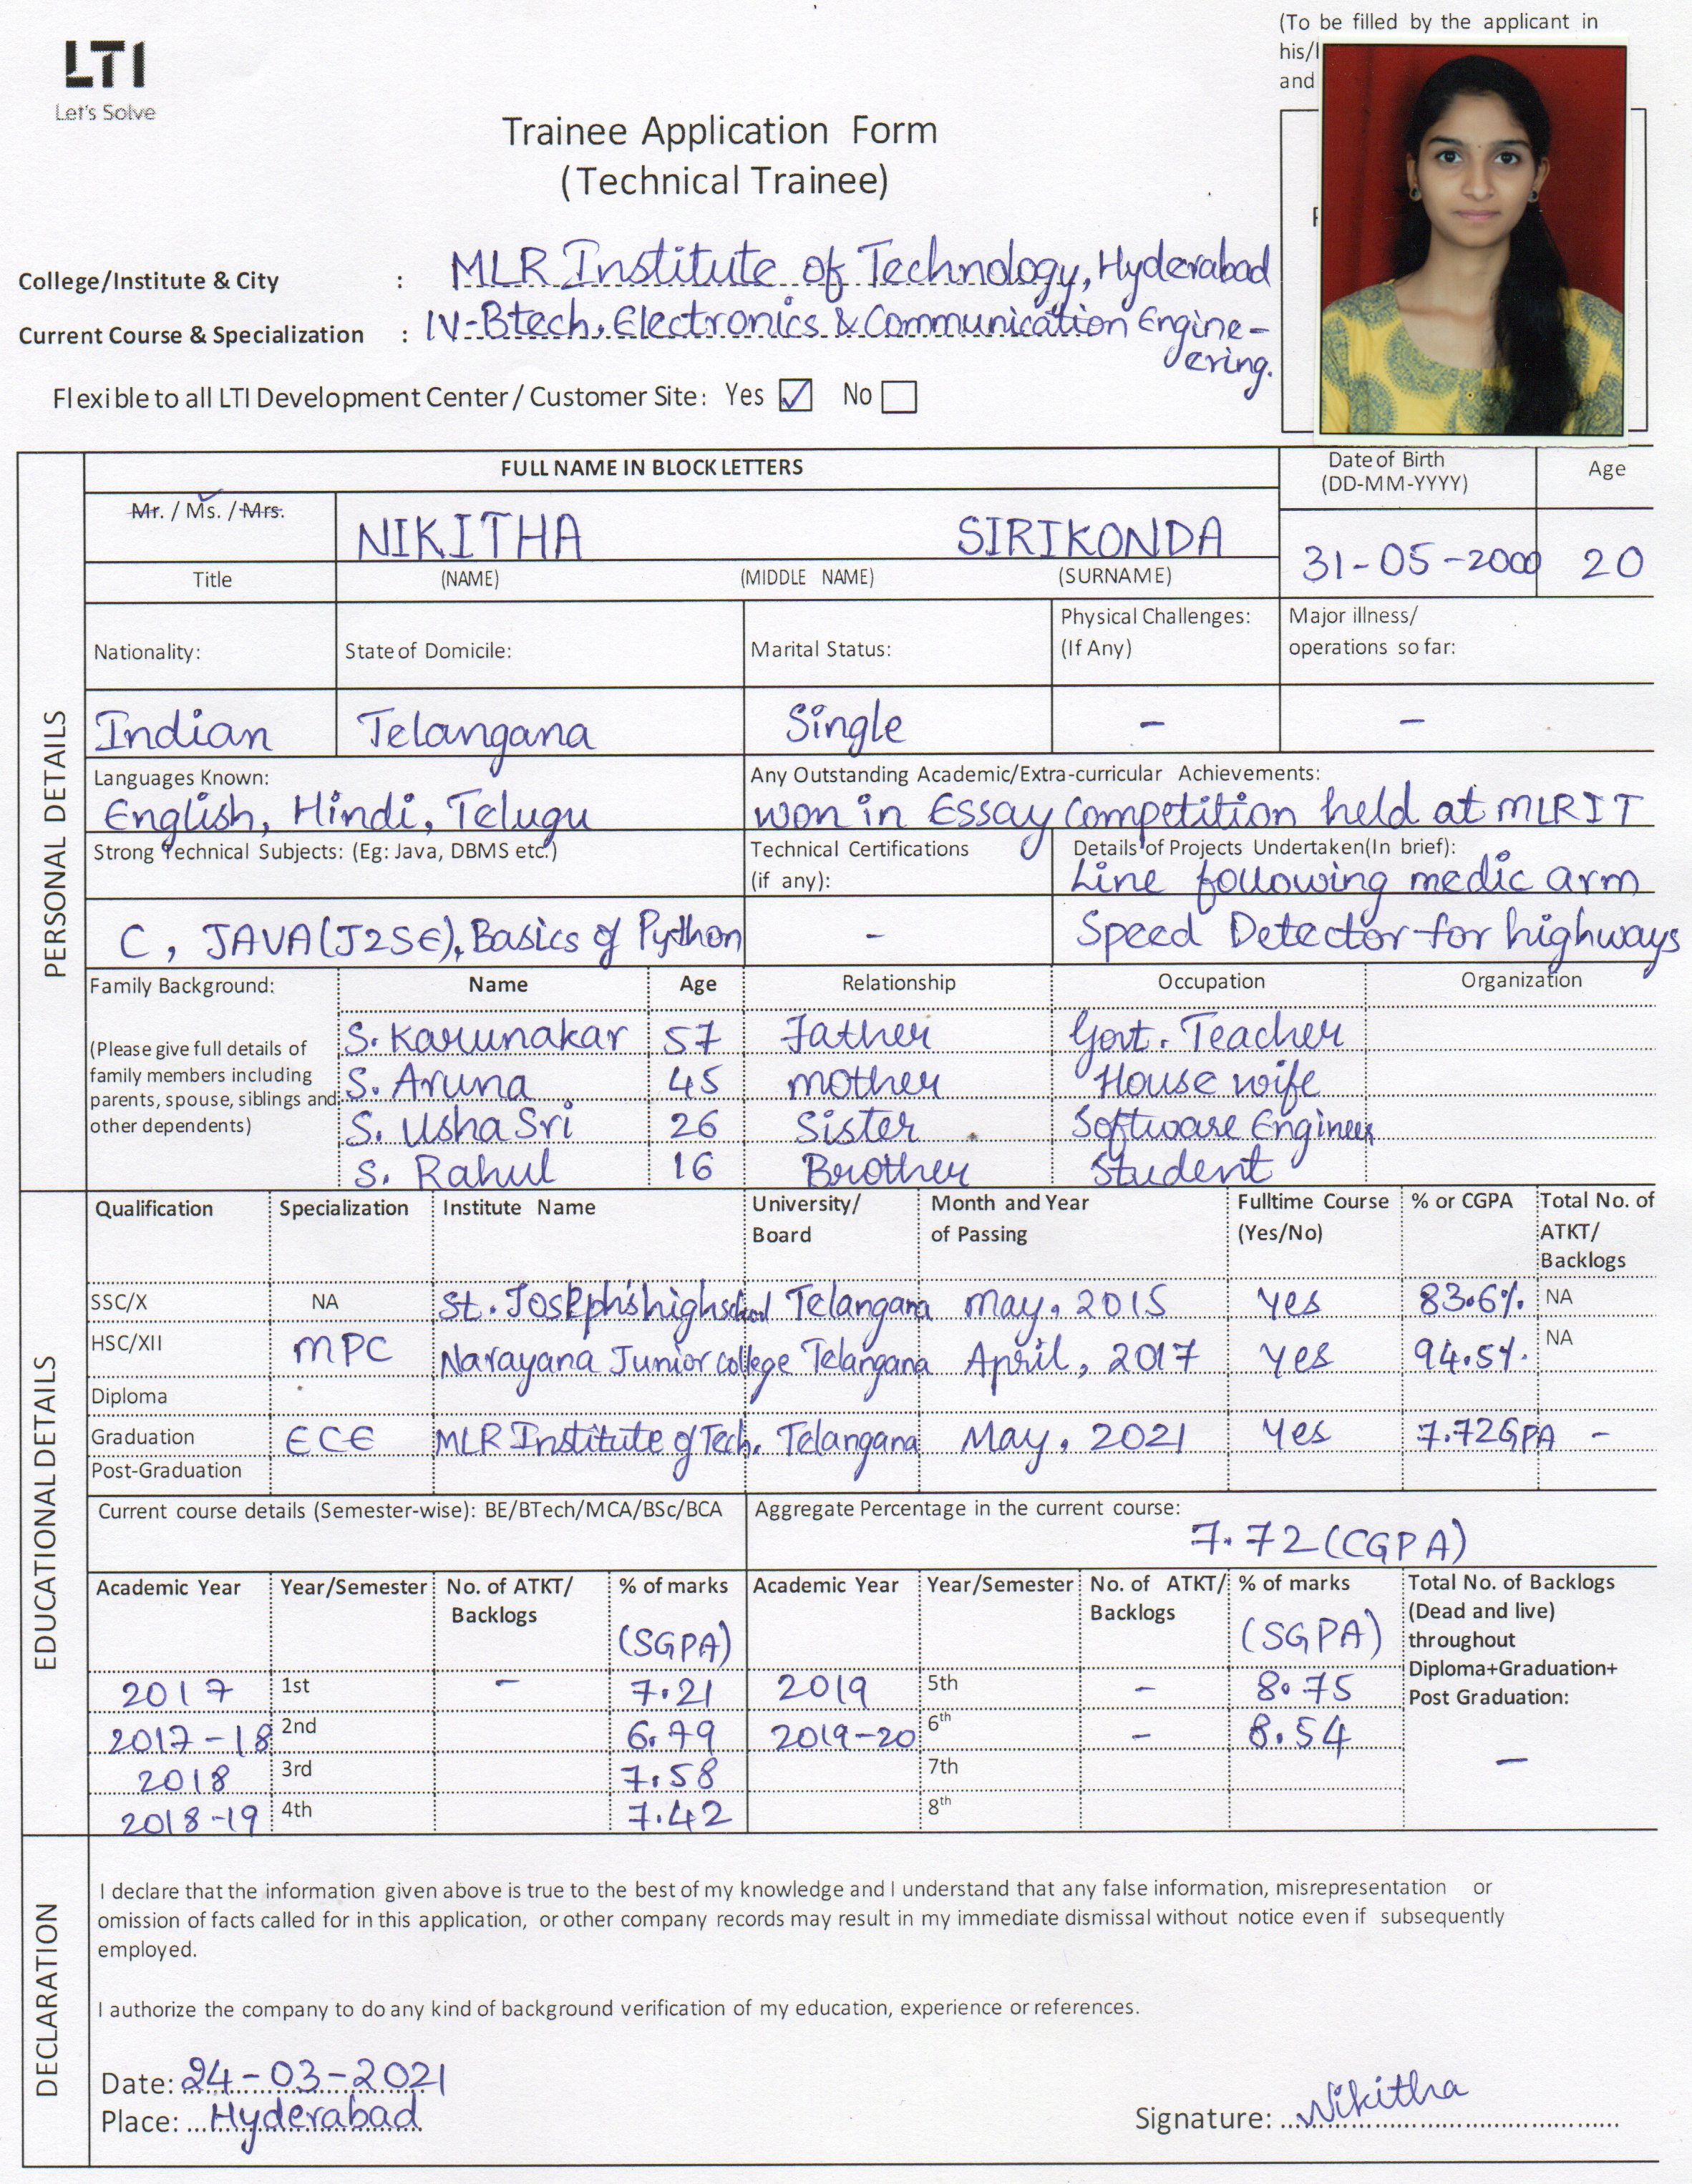 (To be filled by the applicant in
LTI
his/
Let's Solve
and
Trainee Application Form
(Technical Trainee)
College/Institute & City : MLR Institute of Technology, Hyderabad
Current Course & Specialization : IV-Btech, Electronics & Communication Engine-
ering.
Flexible to all LTI Development Center / Customer Site: Yes ☑ No ☐
PERSONAL DETAILS
FULL NAME IN BLOCK LETTERS Date of Birth (DD-MM-YYYY) Age
Mr. / Ms. / Mrs. NIKITHA SIRIKONDA 31-05-2000 20
Title (NAME) (MIDDLE NAME) (SURNAME)
Nationality: State of Domicile: Marital Status: Physical Challenges: (If Any) Major illness/ operations so far:
Indian Telangana Single - -
Languages Known: Any Outstanding Academic/Extra-curricular Achievements:
English, Hindi, Telugu won in Essay Competition held at MLRIT
Strong Technical Subjects: (Eg: Java, DBMS etc.) Technical Certifications (if any): Details of Projects Undertaken(In brief):
Line following medic arm
C, JAVA(J2SE), Basics of Python - Speed Detector for highways
Family Background: Name Age Relationship Occupation Organization
(Please give full details of family members including parents, spouse, siblings and other dependents)
S. Karunakar 57 Father Govt. Teacher
S. Aruna 45 mother House wife
S. Usha Sri 26 Sister Software Engineer
S. Rahul 16 Brother Student
EDUCATIONAL DETAILS
Qualification Specialization Institute Name University/ Board Month and Year of Passing Fulltime Course (Yes/No) % or CGPA Total No. of ATKT/ Backlogs
SSC/X NA St. Joseph's high school Telangana May, 2015 Yes 83.6% NA
HSC/XII MPC Narayana Junior college Telangana April, 2017 Yes 94.5% NA
Diploma
Graduation ECE MLR Institute of Tech. Telangana May, 2021 Yes 7.72GPA -
Post-Graduation
Current course details (Semester-wise): BE/BTech/MCA/BSc/BCA Aggregate Percentage in the current course:
7.72 (CGPA)
Academic Year Year/Semester No. of ATKT/ Backlogs % of marks (SGPA) Academic Year Year/Semester No. of ATKT/ Backlogs % of marks (SGPA) Total No. of Backlogs (Dead and live) throughout Diploma+Graduation+ Post Graduation:
2017 1st - 7.21 2019 5th - 8.75
2017-18 2nd 6.79 2019-20 6th - 8.54
2018 3rd 7.58 7th -
2018-19 4th 7.42 8th
DECLARATION
I declare that the information given above is true to the best of my knowledge and I understand that any false information, misrepresentation or
omission of facts called for in this application, or other company records may result in my immediate dismissal without notice even if subsequently
employed.
I authorize the company to do any kind of background verification of my education, experience or references.
Date: 24-03-2021
Place: Hyderabad
Signature: Nikitha